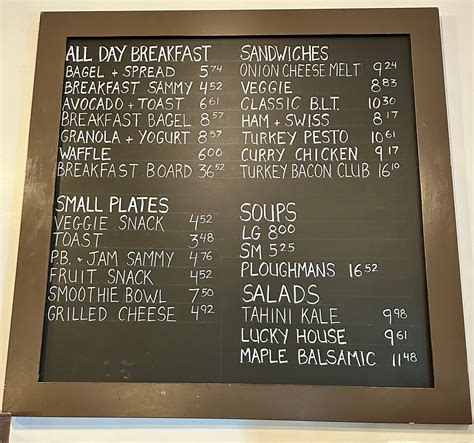 ALL DAY BREAKFAST
BAGEL + SPREAD 5.74
BREAKFAST SAMMY 4.52
AVOCADO + TOAST 6.61
BREAKFAST BAGEL 8.57
GRANOLA + YOGURT 8.57
WAFFLE 6.00
BREAKFAST BOARD 36.52
SMALL PLATES
VEGGIE SNACK 4.52
TOAST 3.48
P.B. + JAM SAMMY 4.76
FRUIT SNACK 4.52
SMOOTHIE BOWL 7.50
GRILLED CHEESE 4.92
SANDWICHES
ONION CHEESE MELT 9.24
VEGGIE 8.83
CLASSIC B.L.T. 10.30
HAM + SWISS 8.17
TURKEY PESTO 10.61
CURRY CHICKEN 9.17
TURKEY BACON CLUB 16.10
SOUPS
LG 8.00
SM 5.25
PLOUGHMANS 16.52
SALADS
TAHINI KALE 9.98
LUCKY HOUSE 9.61
MAPLE BALSAMIC 11.48